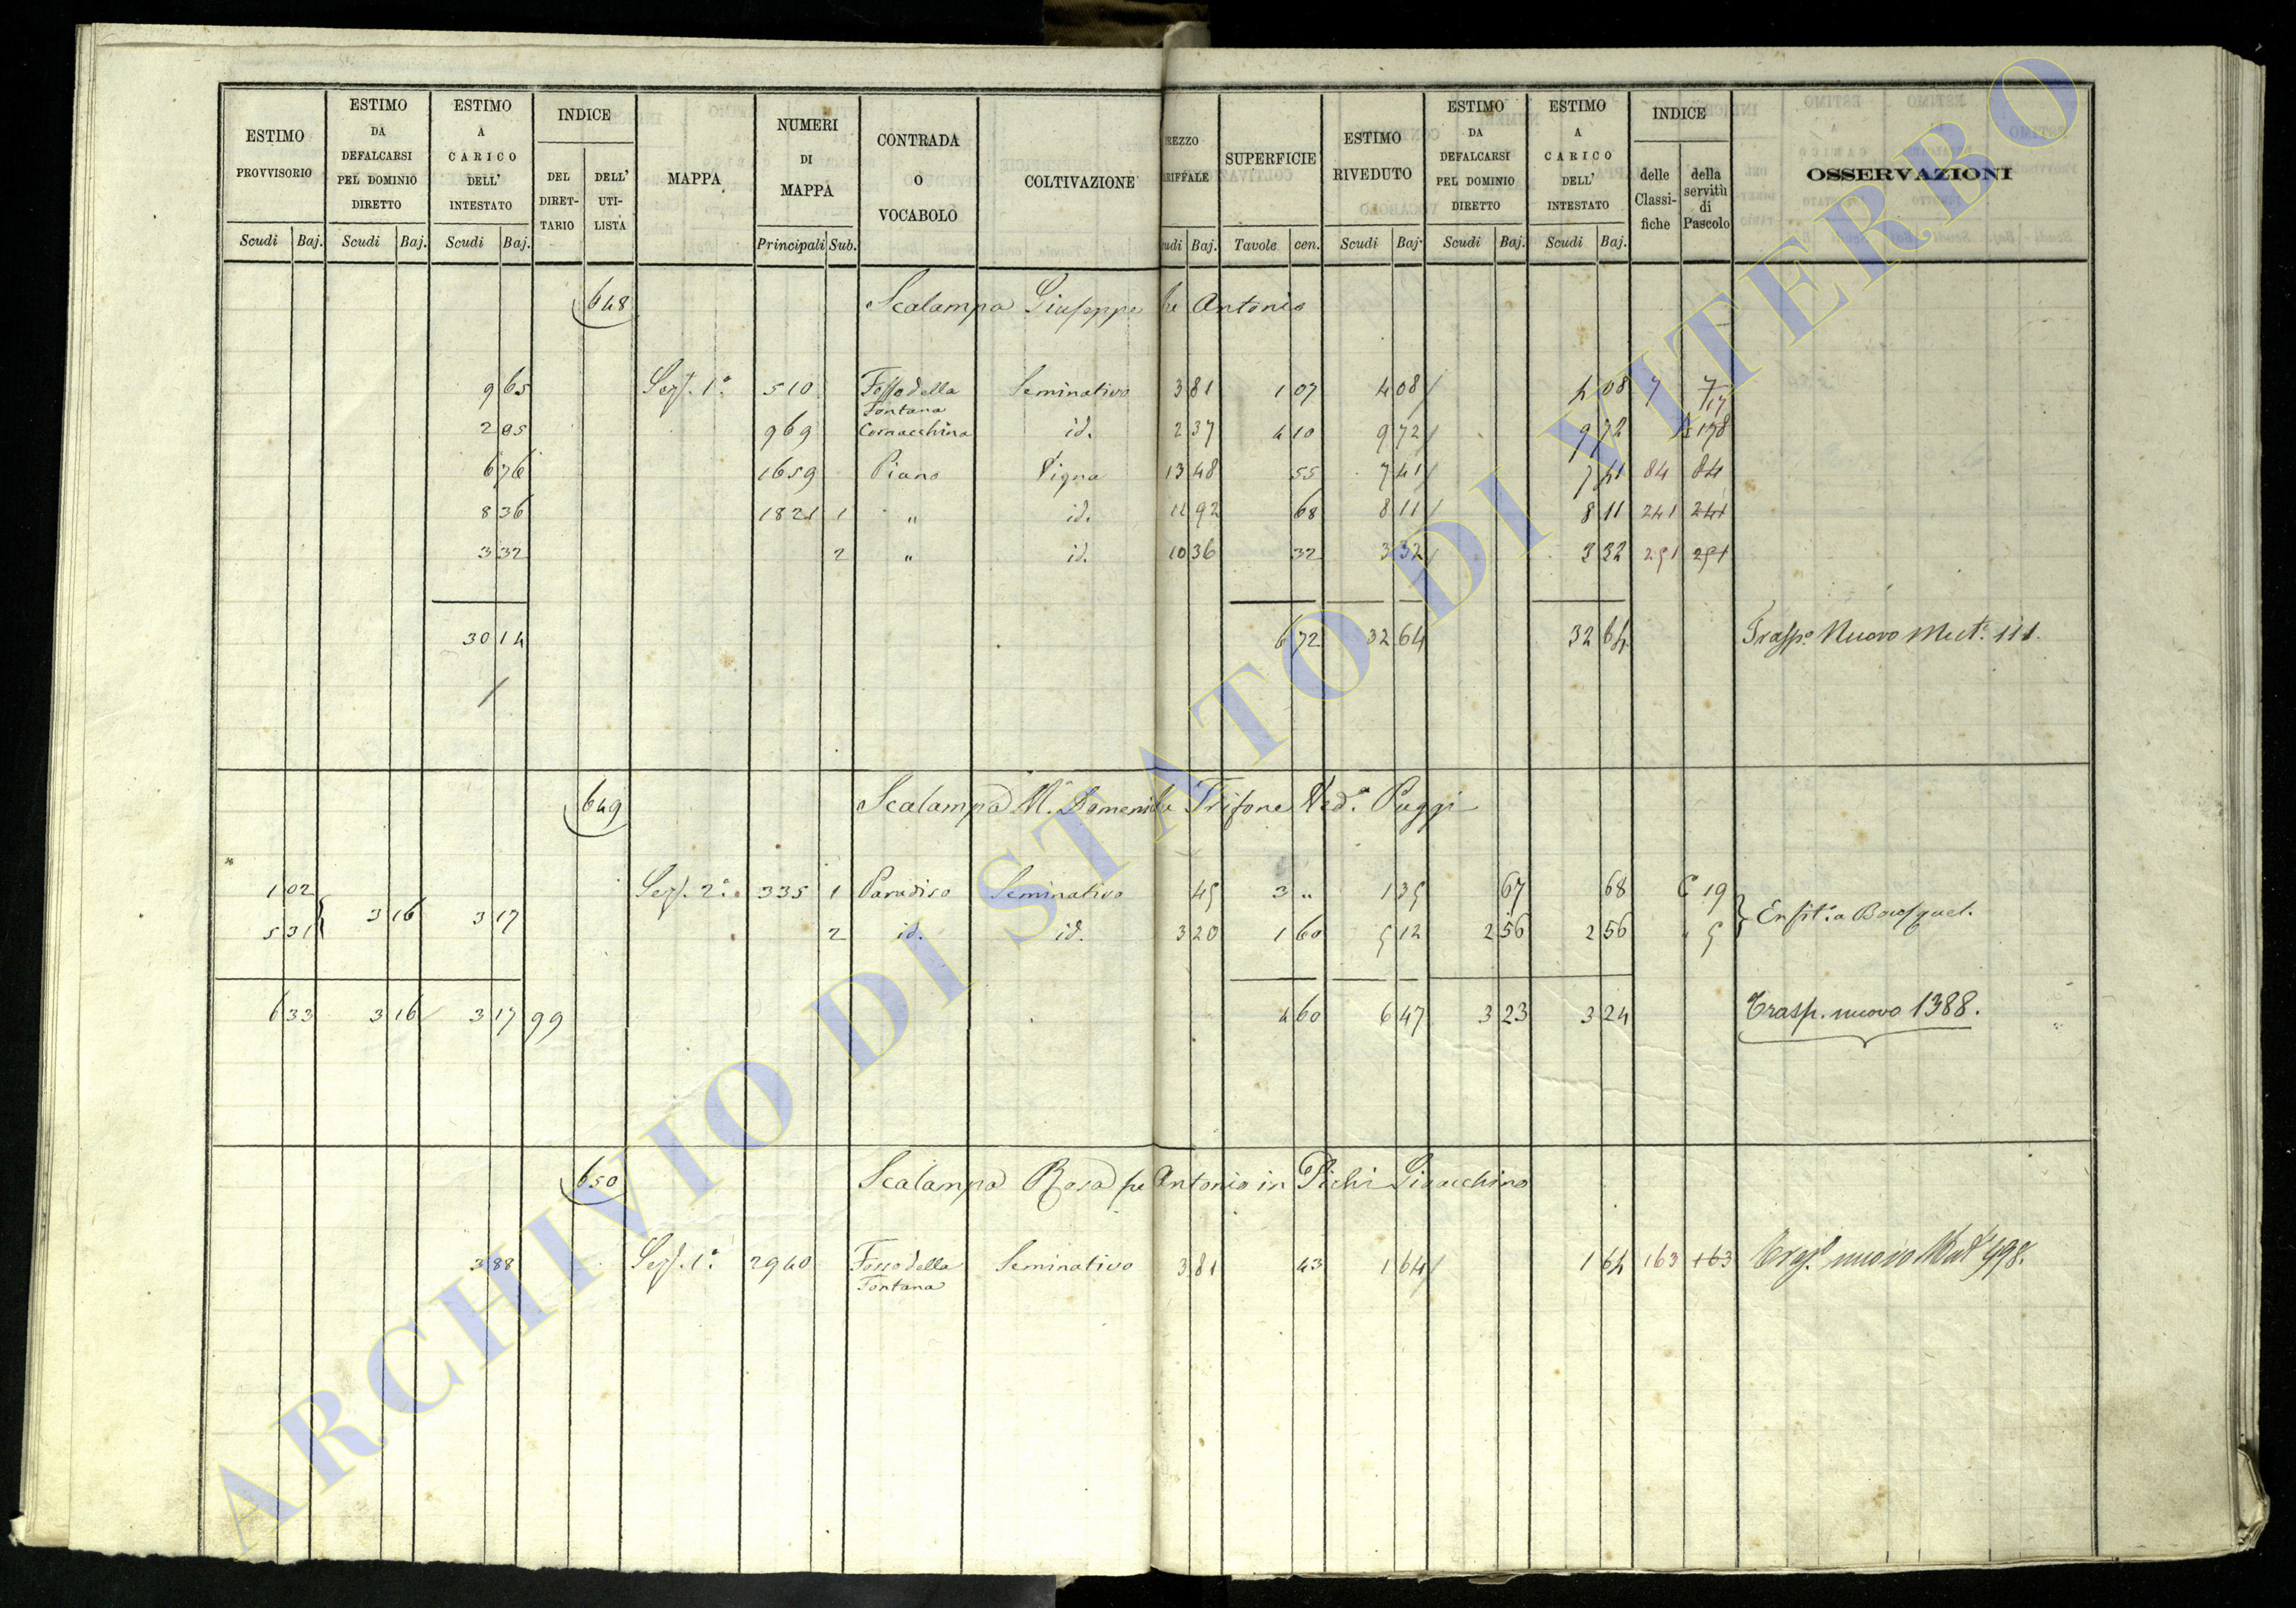 ESTIMO PROVVISORIO Scudi Baj.
ESTIMO DA DEFALCARSI PEL DOMINIO DIRETTO Scudi Baj.
ESTIMO A CARICO DELL' INTESTATO Scudi Baj.
INDICE DEL DIRET-TARIO DELL' UTI-LISTA
MAPPA
NUMERI DI MAPPA Principali Sub.
CONTRADA O VOCABOLO
COLTIVAZIONE
REZZO ARIFFALE udi Baj.
SUPERFICIE Tavole cen.
ESTIMO RIVEDUTO Scudi Baj.
ESTIMO DA DEFALCARSI PEL DOMINIO DIRETTO Scudi Baj.
ESTIMO A CARICO DELL' INTESTATO Scudi Baj.
INDICE delle Classi-fiche della servitù di Pascolo
OSSERVAZIONI
648 Scalampa Giuseppe fu Antonio
9 65 Sez. 1ª 510 Fosso della Fontana Seminativo 3 81 1 07 4 08 4 08 7 7
2 05 969 Cornacchina id. 2 37 4 10 9 72 9 72 178
6 76 1659 Piano Vigna 13 48 55 7 41 7 41 84 84
8 36 1821 1 " id. 11 92 68 8 11 8 11 241 241
3 32 2 " id. 10 36 32 3 32 3 32 251 251
30 14 6 72 32 64 32 64 Trasp. Nuovo Mut. 111.
649 Scalampa M.ª Domenica fu Trifone Ved.ª Puggi
1 02 Sez. 2ª 335 1 Paradiso Seminativo 45 3 " 1 35 67 68 C 19
3 16 3 17
5 31 2 id. id. 3 20 1 60 5 12 2 56 2 56 " 5
Enfit. a Bousquet.
6 33 3 16 3 17 99 4 60 6 47 3 23 3 24 Trasp. nuovo 1388.
650 Scalampa Rosa fu Antonio in Pichi Gioacchino
3 88 Sez. 1ª 2940 Fosso della Fontana Seminativo 3 81 43 1 64 1 64 163 163 nuovo Mat. 998.
ARCHIVIO DI STATO DI VITERBO